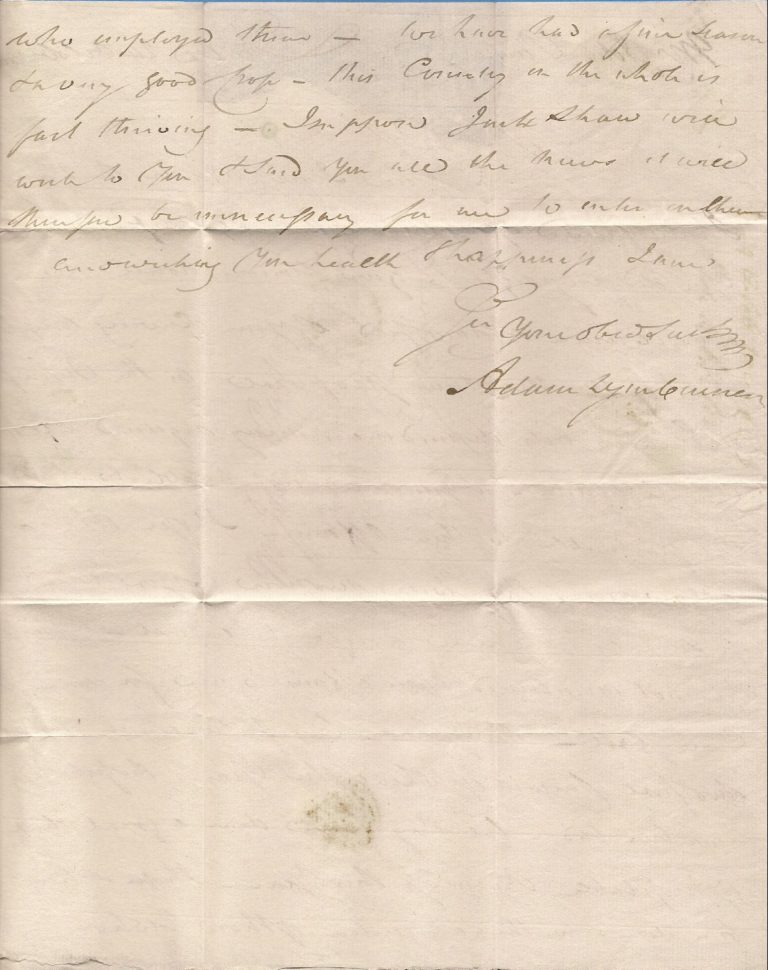 who employed them – We have had a fine Season
& a very good Crop – this Country on the whole is
fast thriving – I suppose Jack Shaw will
write to You & Send You all the News it will
therefore be unnecessary for me to enter on them
and wishing You health & happiness I am
Sir
Your Obed Servt
Adam